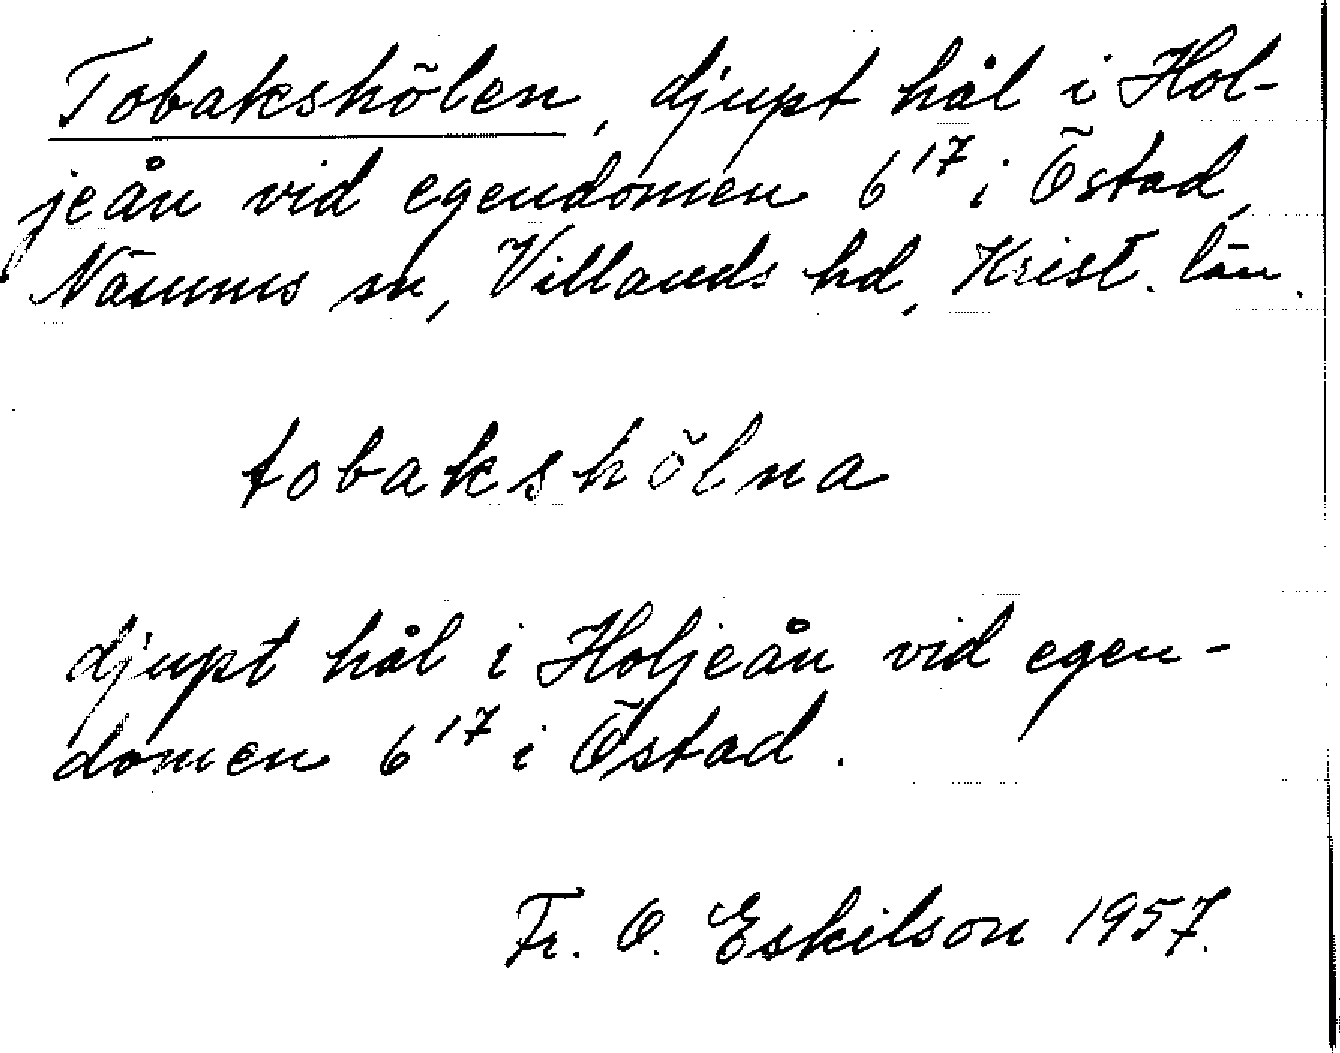 Tobakshölen, djupt hål i Hol-
jeån vid egendomen 6¹⁷ i Östad,
Näsums sn, Villands hd, Krist. län.
tobakshölna
djupt hål i Holjeån vid egen-
domen 6¹⁷ i Östad.
Fr. O. Eskilson 1957.